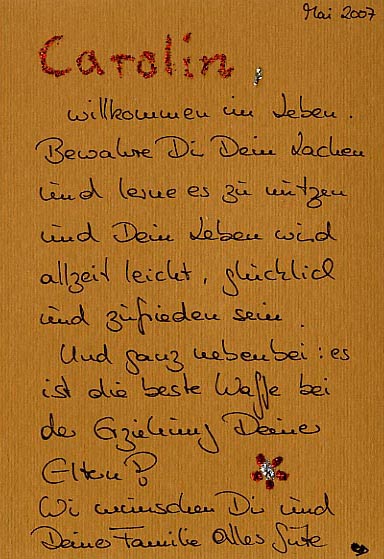 Mai 2007
Carolin,
willkommen im Leben.
Bewahre Dir Dein Lachen
und lerne es zu nutzen
und Dein Leben wird
allzeit leicht, glücklich
und zufrieden sein.
Und ganz nebenbei: es
ist die beste Waffe bei
der Erziehung Deiner
Eltern!
Wir wünschen Dir und
Deiner Familie alles Gute